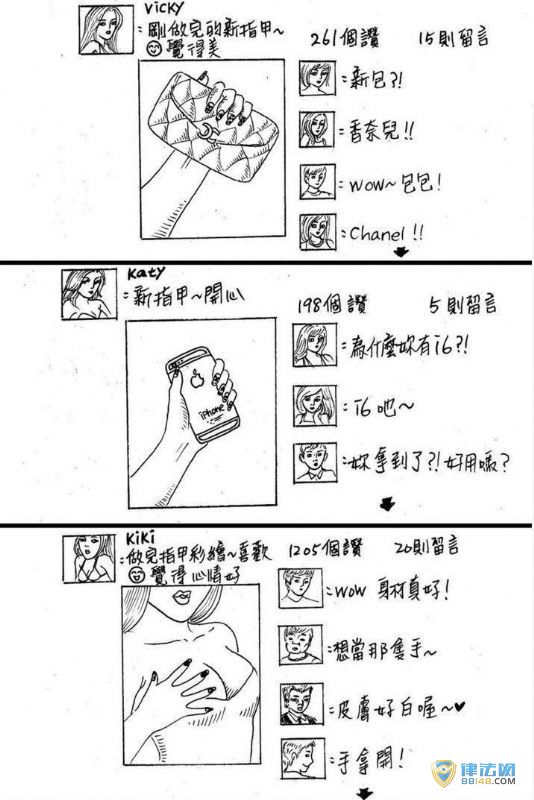 Vicky
:剛做完的新指甲~
覺得美
261個讚 15則留言
:新包?!
:香奈兒!!
:wow~包包!
:Chanel!!
Katy
:新指甲~開心
198個讚 5則留言
:為什麼妳有i6?!
:i6吔~
:妳拿到了?!好用嗎?
iphone
KiKi
:做完指甲彩繪~喜歡
覺得心情好
1205個讚 20則留言
:wow 身材真好!
:想當那隻手~
:皮膚好白喔~♥
:手拿開!
律法网
88148.com